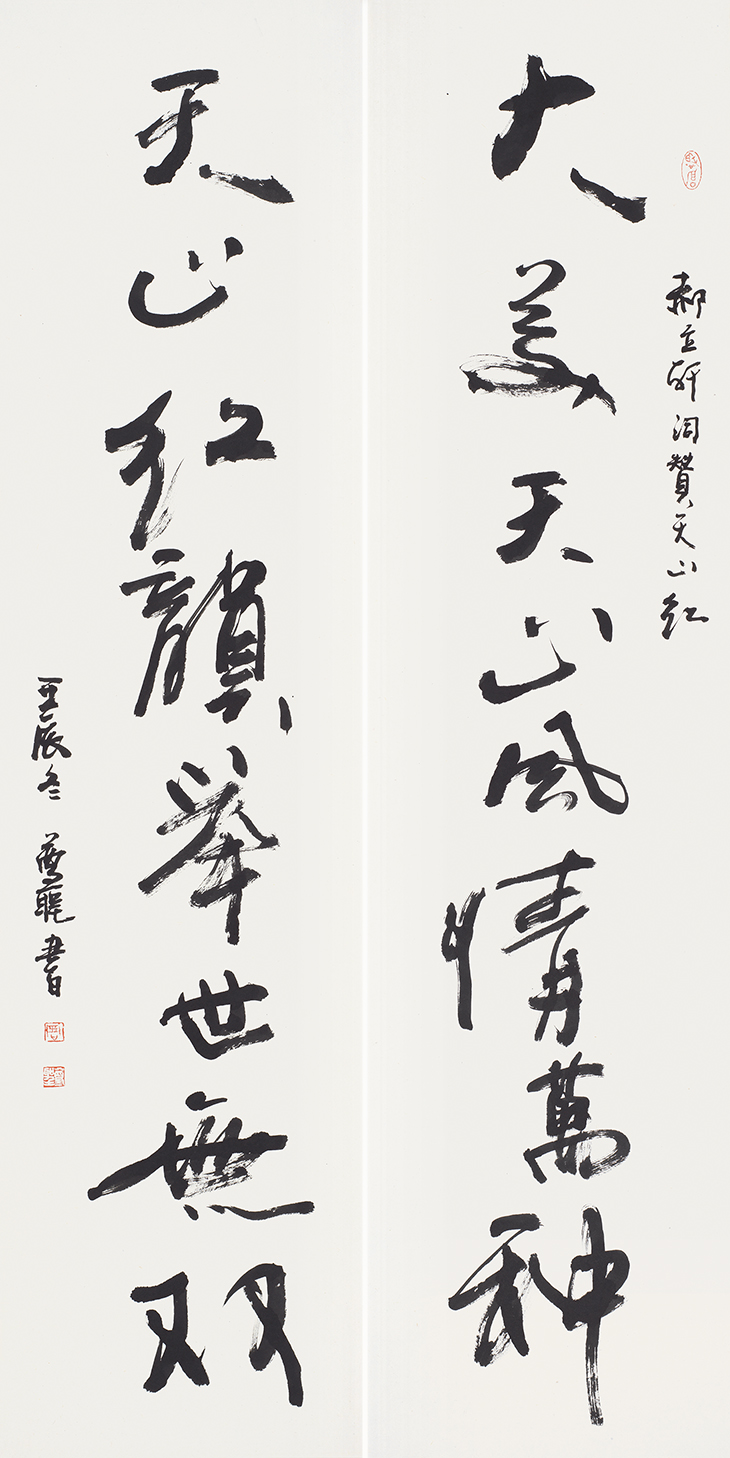 郝立轩词赞天山红
大美天山风情萬种
天山红韻举世無双
壬辰冬
书